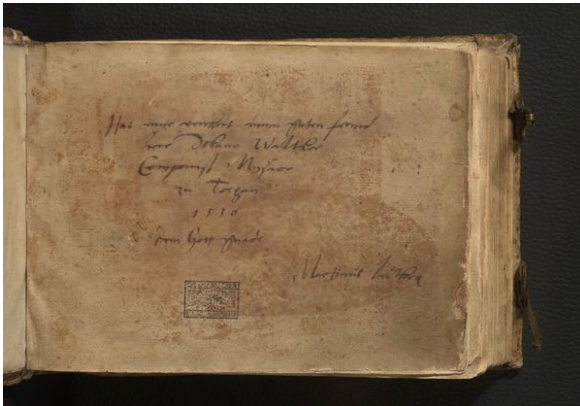 Hat myr verehret meyn guter freund
herr Johann Walther
Componist Musice
zu Torgau
1530
dem Gott gnade
Martinus Luther